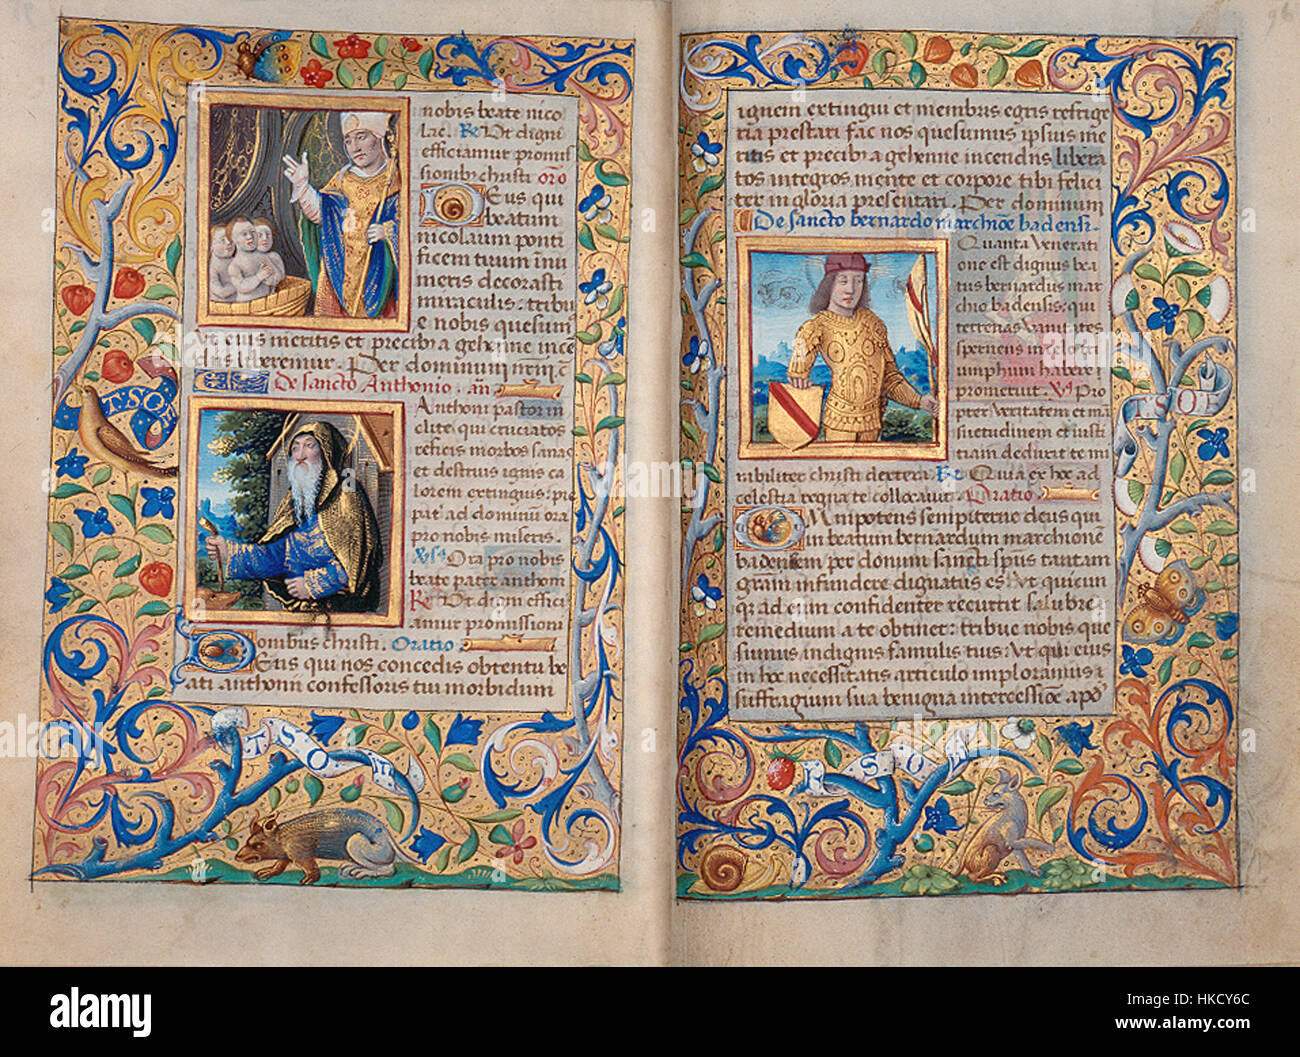 nobis beate nico
lae. Re Ut digni
efficiamur promis
sionibus christi oro
Deus qui
beatum
nicolaum ponti
ficem tuum innu
meris decorasti
miraculis: tribu
e nobis quesumus
Ut eius meritis et precibus a gehenne incen
diis liberemur. Per dominum
De sancto Anthonio. an
Anthoni pastor in
clite qui cruciatos
reficis morbos sanas
et destruis ignis ca
lorem extinguis: pie
pater ad dominum ora
pro nobis miseris.
Ora pro nobis
beate pater anthoni
Re Ut digni effici
amur promissioni
onibus christi. Oratio
Deus qui nos concedis obtentu be
ati anthonii confessoris tui morbidum
T·S·O
T·S·O
96
ignem extingui et membris egris refrige
ria prestari fac nos quesumus ipsius me
ritis et precibus a gehenne incendiis libera
tos integros mente et corpore tibi felici
ter in gloria presentari. Per dominum
De sancto bernardo marchione badensi.
Quanta venerati
one est dignus bea
tus bernardus mar
chio badensis: qui
terrenas vanitates
spernens
umphum habere
prometuit. Pro
pter veritatem et man
suetudinem et iusti
tiam deducit te mi
rabiliter christi dextera. Re Quia ex hoc ad
celestia regna te collocavit. Oratio
Omnipotens sempiterne deus qui
in beatum bernardum marchionem
badensem per donum sancti spiritus tantam
gratiam infundere dignatus es: Ut quicun
que ad eum confidenter recurrit salubre
remedium a te obtinet: tribue nobis que
sumus indignis famulis tuis: Ut qui eius
in hoc necessitatis articulo imploramus a
suffragium sua benigna intercessione apo
alamy stock photo
Image ID: HKCY6C
www.alamy.com